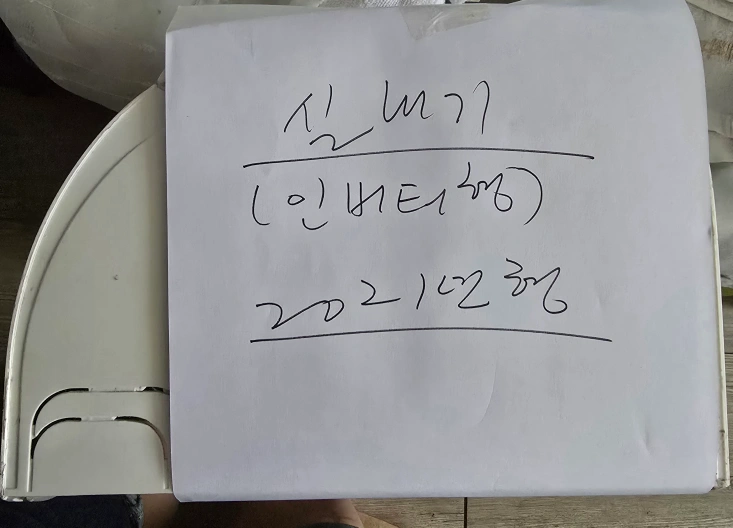 실내기
(인버터형)
2021년형